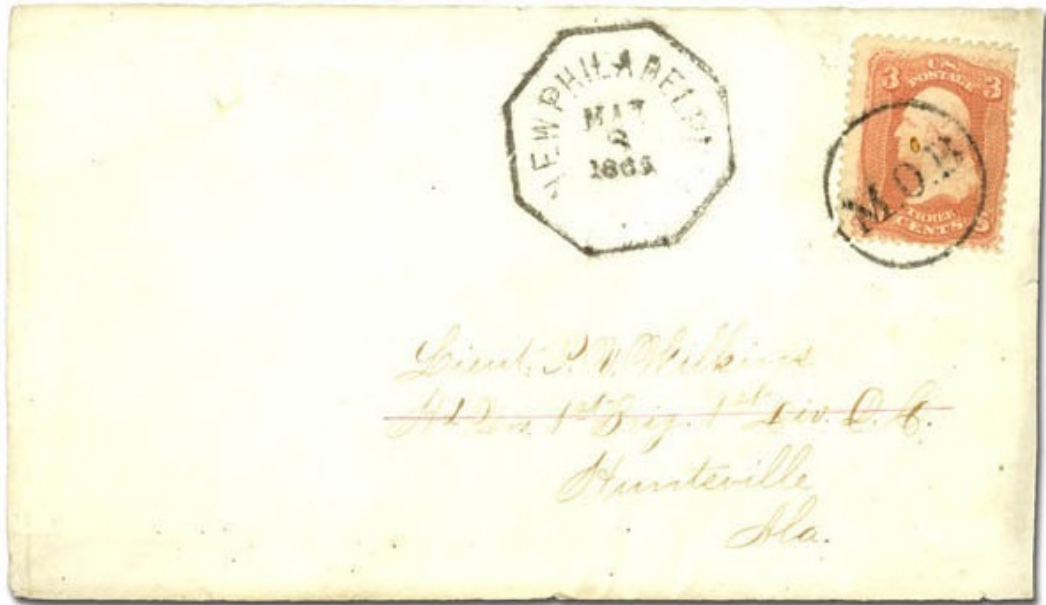 NEW PHILADELPHI
MAY
2
1865
U.S.
POSTAGE
3 3
M.O.B
THREE
CENTS
Lieut. P. W. Wilkins
Hd. Qrs. 1st Brig. 1st Div. D. C.
Huntsville
Ala.